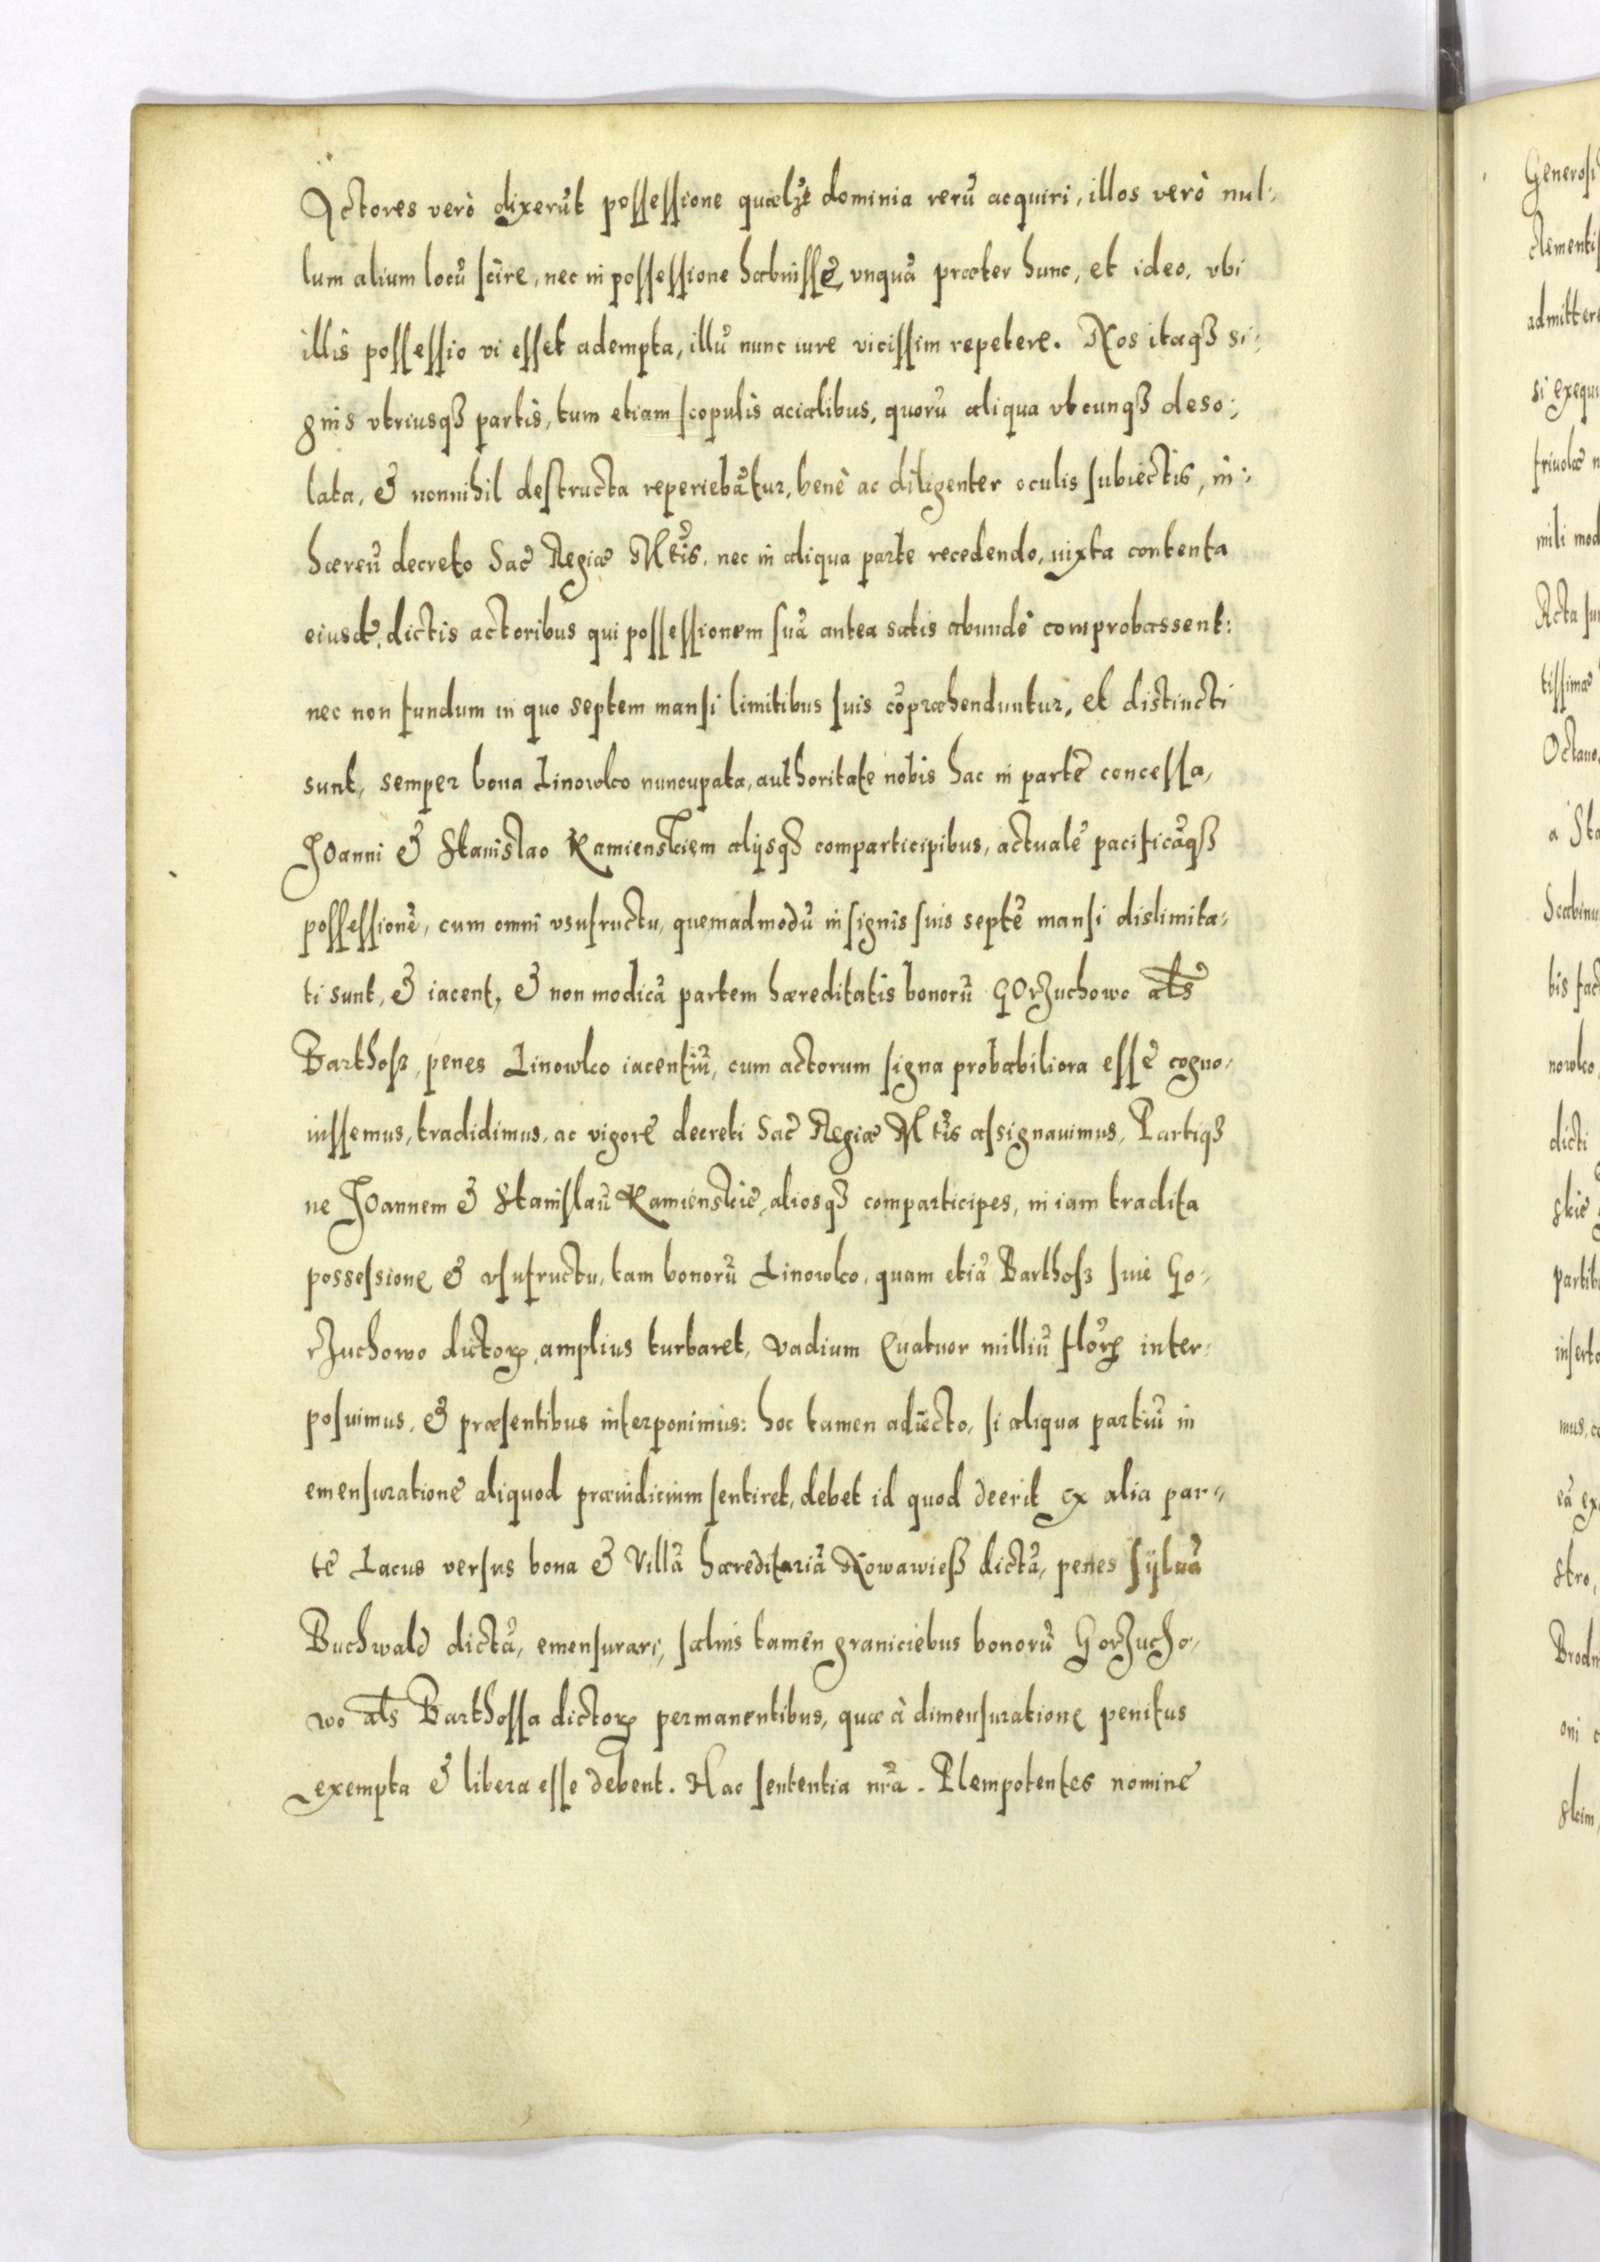 Actores verò dixerūt possessione quælꝫ dominia rerū acquiri, illos verò nul-
lum alium locū scire, nec in possessione habuisse, vnquā præter hunc, et ideo, vbi
illis possessio vi esset adempta, illū nunc iure vicissim repetere. Nos itaqꝫ si-
gnis vtriusqꝫ partis, tum etiam scopulis acialibus, quorū aliqua vtcunqꝫ deso-
lata, & nonnihil destructa reperiebātur, benè ac diligenter oculis subiectis, in-
hæreū decreto Sac̃ Regiæ Mtis̃, nec in aliqua parte recedendo, iuxta contenta
eiusdẽ, dictis actoribus qui possessionem suā antea satis abundè comprobassent:
nec non fundum in quo septem mansi limitibus suis cōpræhenduntur, et distincti
sunt, semper bona Linowko nuncupata, authoritate nobis hac in parte concessa,
Joanni & Stanislao Kamienskiem alijsqꝫ comparticipibus, actualẽ pacificāqꝫ
possessionẽ, cum omni vsufructu, quemadmodū in signis suis septẽ mansi dislimita-
ti sunt, & iacent, & non modicā partem hæreditatis bonorū GOrzuchowo als̃
Barthosz, penes Linowko iacentiū, cum actorum signa probabiliora esse cogno-
uissemus, tradidimus, ac vigore decreti Sac̃ Regiæ Mtis̃ assignauimus, Partiqꝫ
ne Joannem & Stanislaū Kamienskiẽ, aliosqꝫ comparticipes, in iam tradita
possessione & vsufructu, tam bonorū Linowko, quam etiā Barthosz siue Go-
rzuchowo dictoꝝ, amplius turbaret, vadium Quatuor milliū floꝝ inter-
posuimus, & præsentibus interponimus: hoc tamen adiecto, si aliqua partiū in
emensuratione aliquod præiudicium sentiret, debet id quod deerit ex alia par-
te Lacus versus bona & Villā hæreditariā Nowawiesz dictā, penes syluā
Buchwald dictā, emensurari, saluis tamen graniciebus bonorū Gorzucho-
wo als Barthossa dictoꝝ permanentibus, quæ à dimensuratione penitus
exempta & libera esse debent. Hac sententia nr̃a. Plempotentes nomine